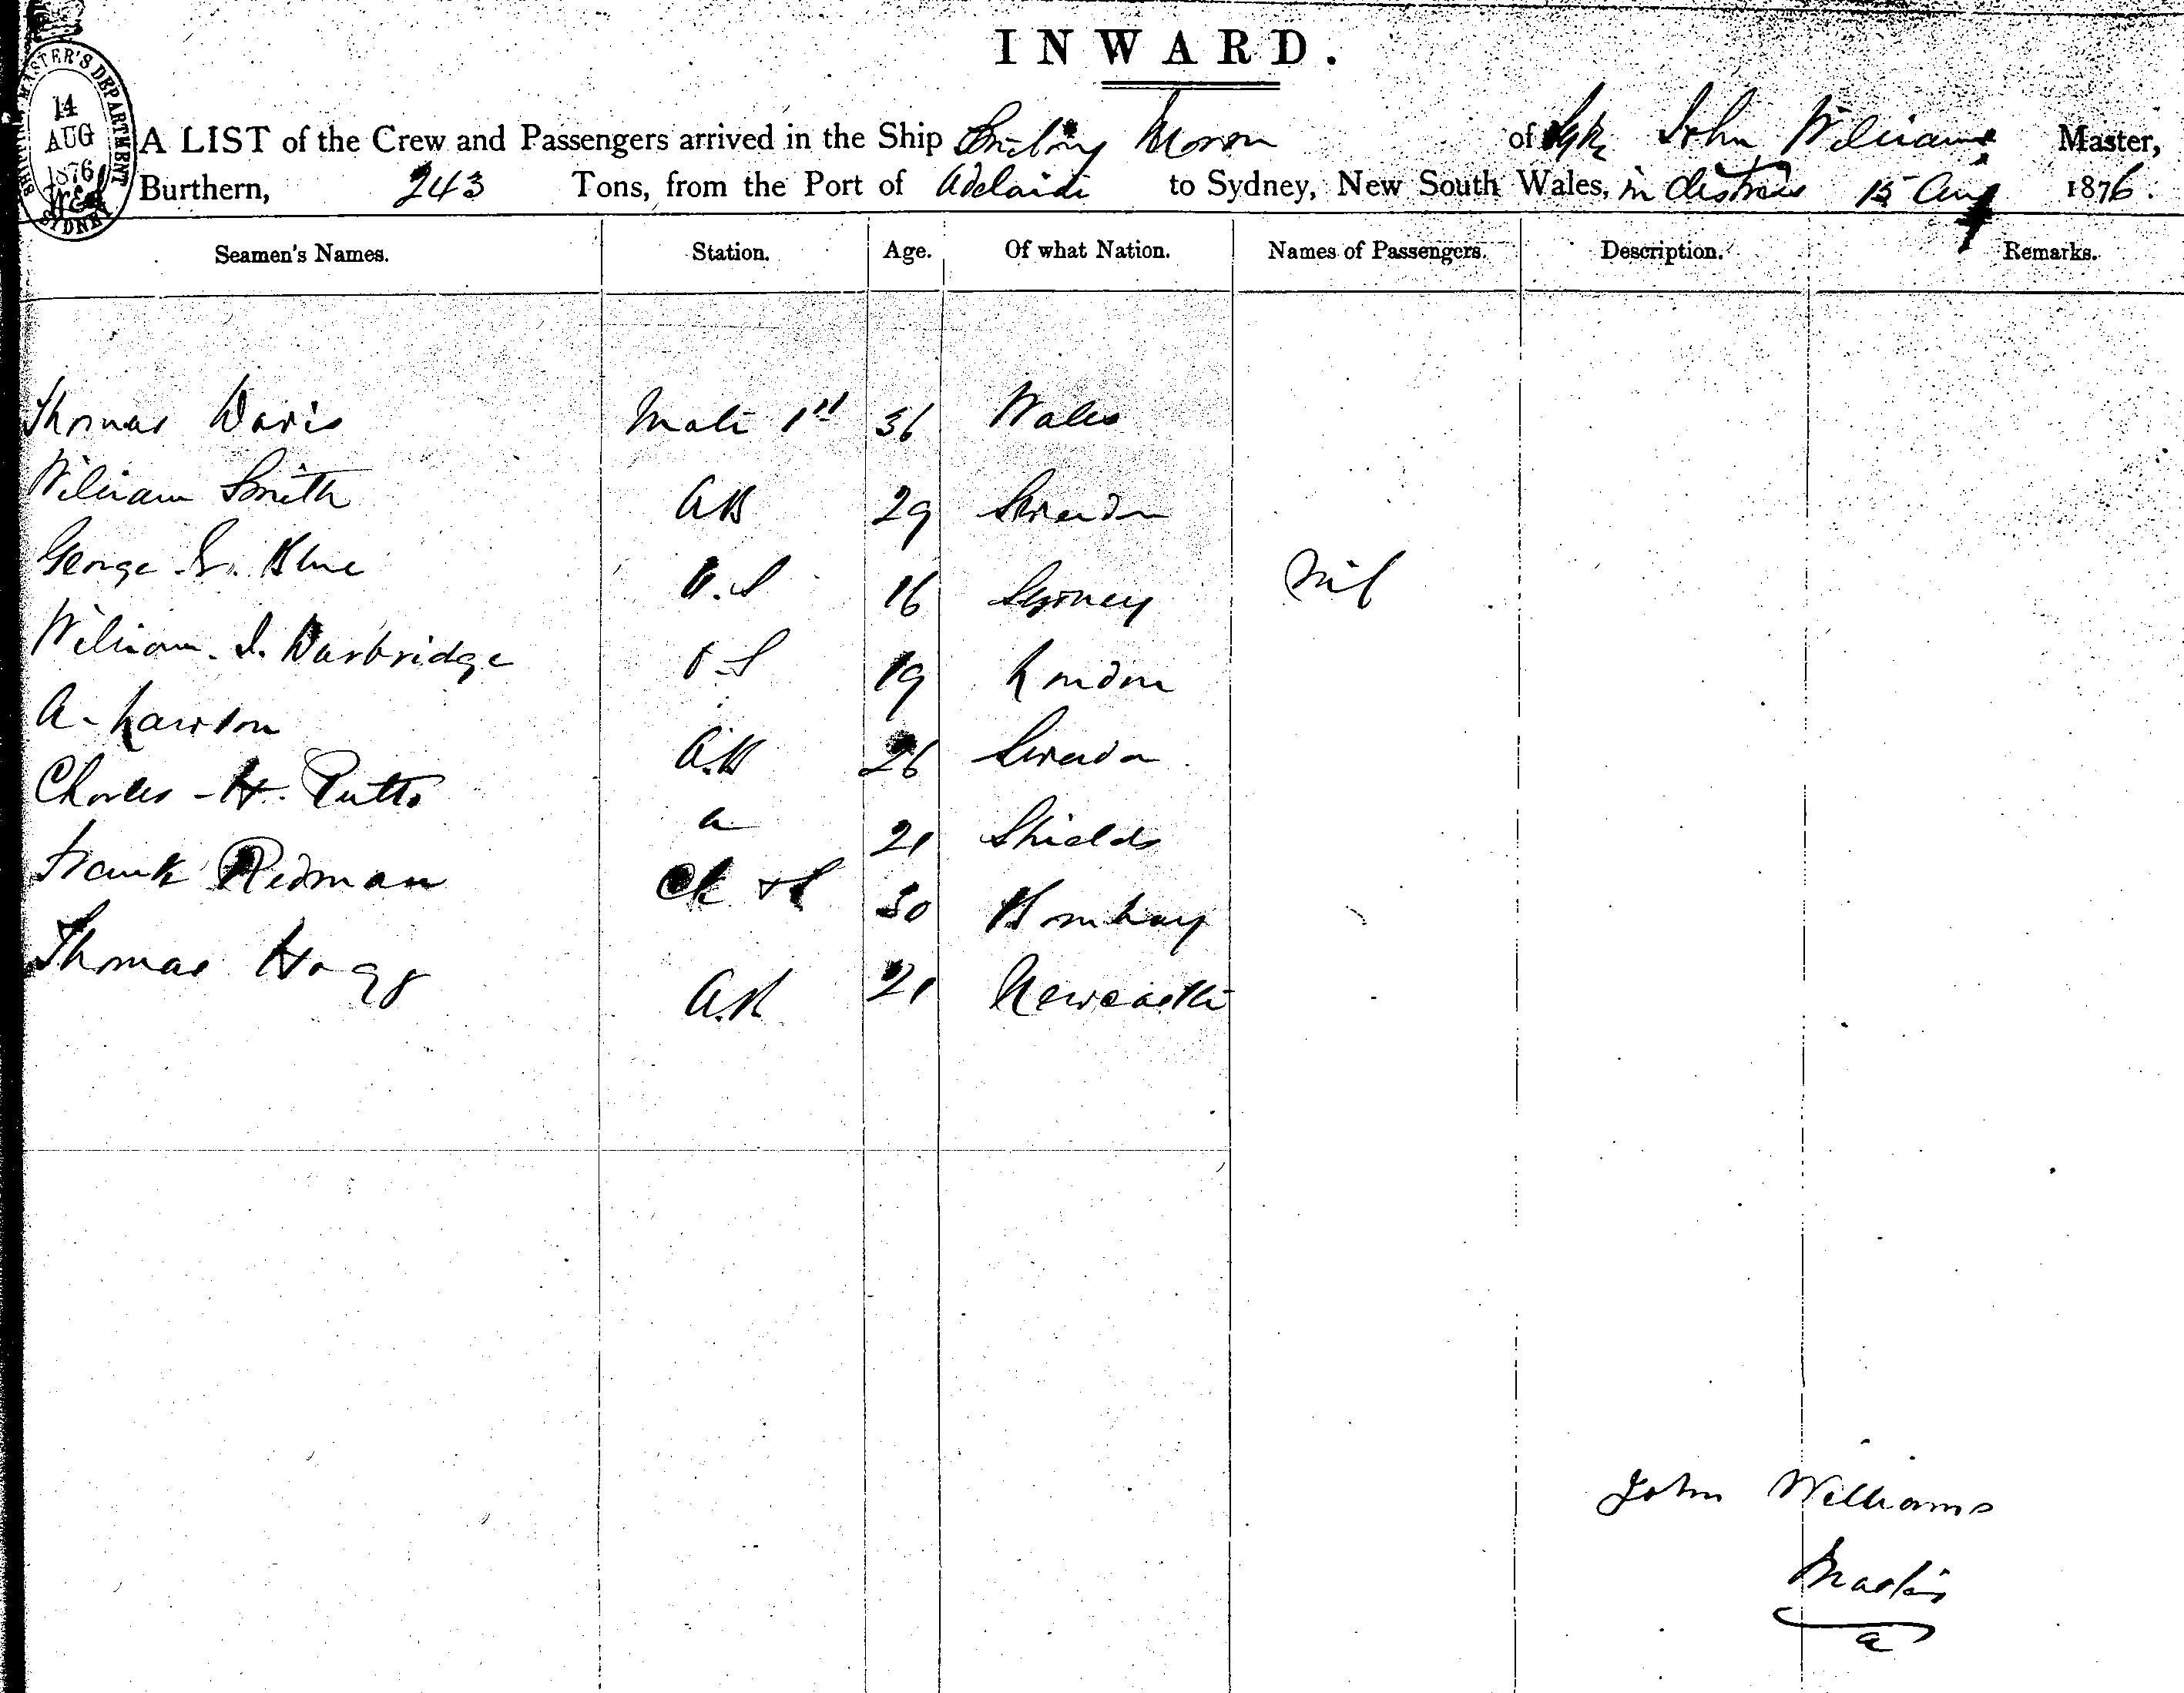 INWARD.
SHIPPING MASTER'S DEPARTMENT
14
AUG
1876
SYDNEY
A LIST of the Crew and Passengers arrived in the Ship of John Williams Master,
Burthern, 243 Tons, from the Port of Adelaide to Sydney, New South Wales, in distress 15 Aug 1876.
Seamen's Names. Station. Age. Of what Nation. Names of Passengers. Description. Remarks.
Thomas Davis Mate 1st 36 Wales
William Smith AB 29 Sweden
George S. Blue O.S 16 Sydney Nil
William. I. Warbridge O.S 19 London
A. Lawson A.B 26 Sweden
Charles H. Putto a 21 Shields
Frank Redman Ck & S 30 Bombay
Thomas Hogg A.B. 21 Newcastle
John Williams
Master